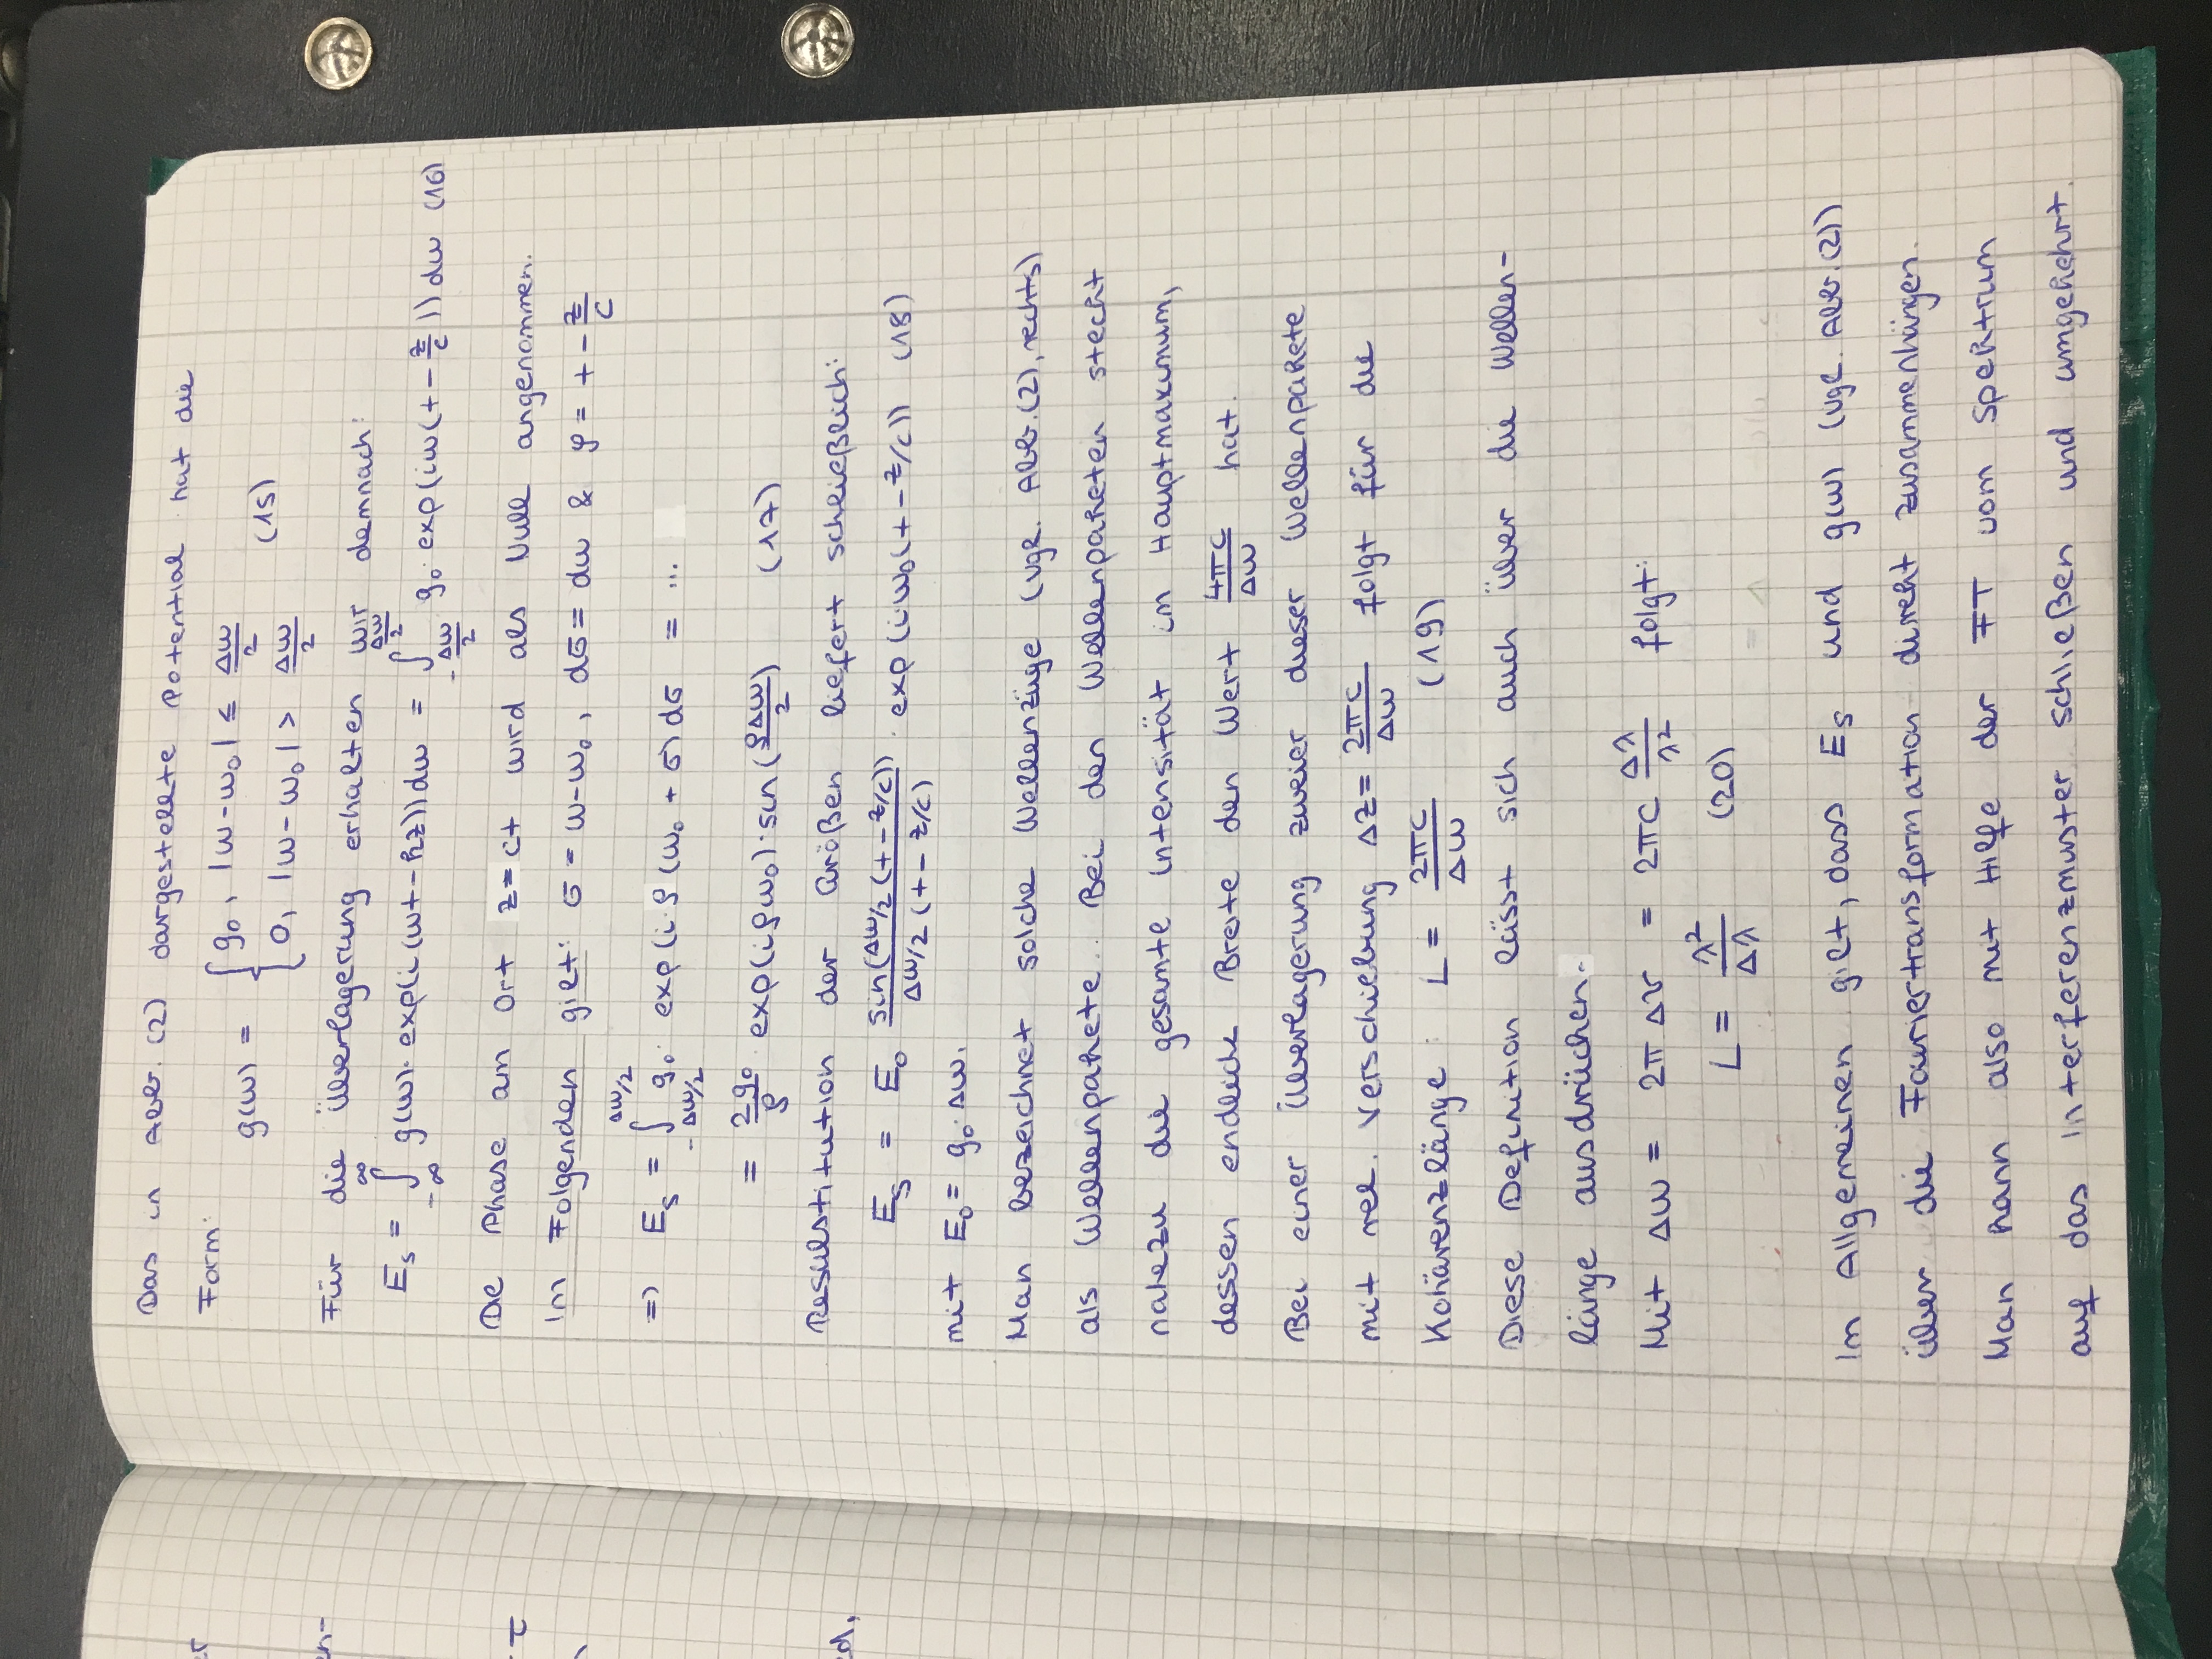 Das in Abb. (2) dargestellte Potential hat die
Form:
g(ω) = { g₀, |ω-ω₀| ≤ Δω/2
0, |ω-ω₀| > Δω/2 (15)
Für die Überlagerung erhalten wir demnach:
E_s = ∫_{-∞}^{∞} g(ω)· exp(i(ωt-kz))dω = ∫_{-Δω/2}^{Δω/2} g₀· exp(iω(t-z/c))dω (16)
Die Phase am Ort z=ct wird als Null angenommen.
Im Folgenden gilt: σ = ω-ω₀, dσ = dω & ρ = t - z/c
=> E_s = ∫_{-Δω/2}^{Δω/2} g₀· exp(i·ρ(ω₀ + σ)dσ = ...
= 2g₀/ρ exp(iρω₀)·sin(ρΔω/2) (17)
Resubstitution der Größen liefert schließlich:
E_s = E₀ sin(Δω/2 (t-z/c))/Δω/2 (t-z/c) · exp(i·ω₀(t-z/c)) (18)
mit E₀ = g₀·Δω.
Man bezeichnet solche Wellenzüge (vgl. Abb.(2), rechts)
als Wellenpakete. Bei den Wellenpaketen steckt
nahezu die gesamte Intensität im Hauptmaximum,
dessen endliche Breite den Wert 4πc/Δω hat.
Bei einer Überlagerung zweier dieser Wellenpakete
mit rel. Verschiebung Δz = 2πc/Δω folgt für die
Kohärenzlänge: L = 2πc/Δω (19)
Diese Definition lässt sich auch über die Wellen-
länge ausdrücken.
Mit Δω = 2π Δν = 2πc Δλ/λ² folgt:
L = λ²/Δλ (20)
Im Allgemeinen gilt, dass E_s und g(ω) (vgl. Abb.(2))
über die Fouriertransformation direkt zusammenhängen.
Man kann also mit Hilfe der FT vom Spektrum
auf das Interferenzmuster schließen und umgekehrt.